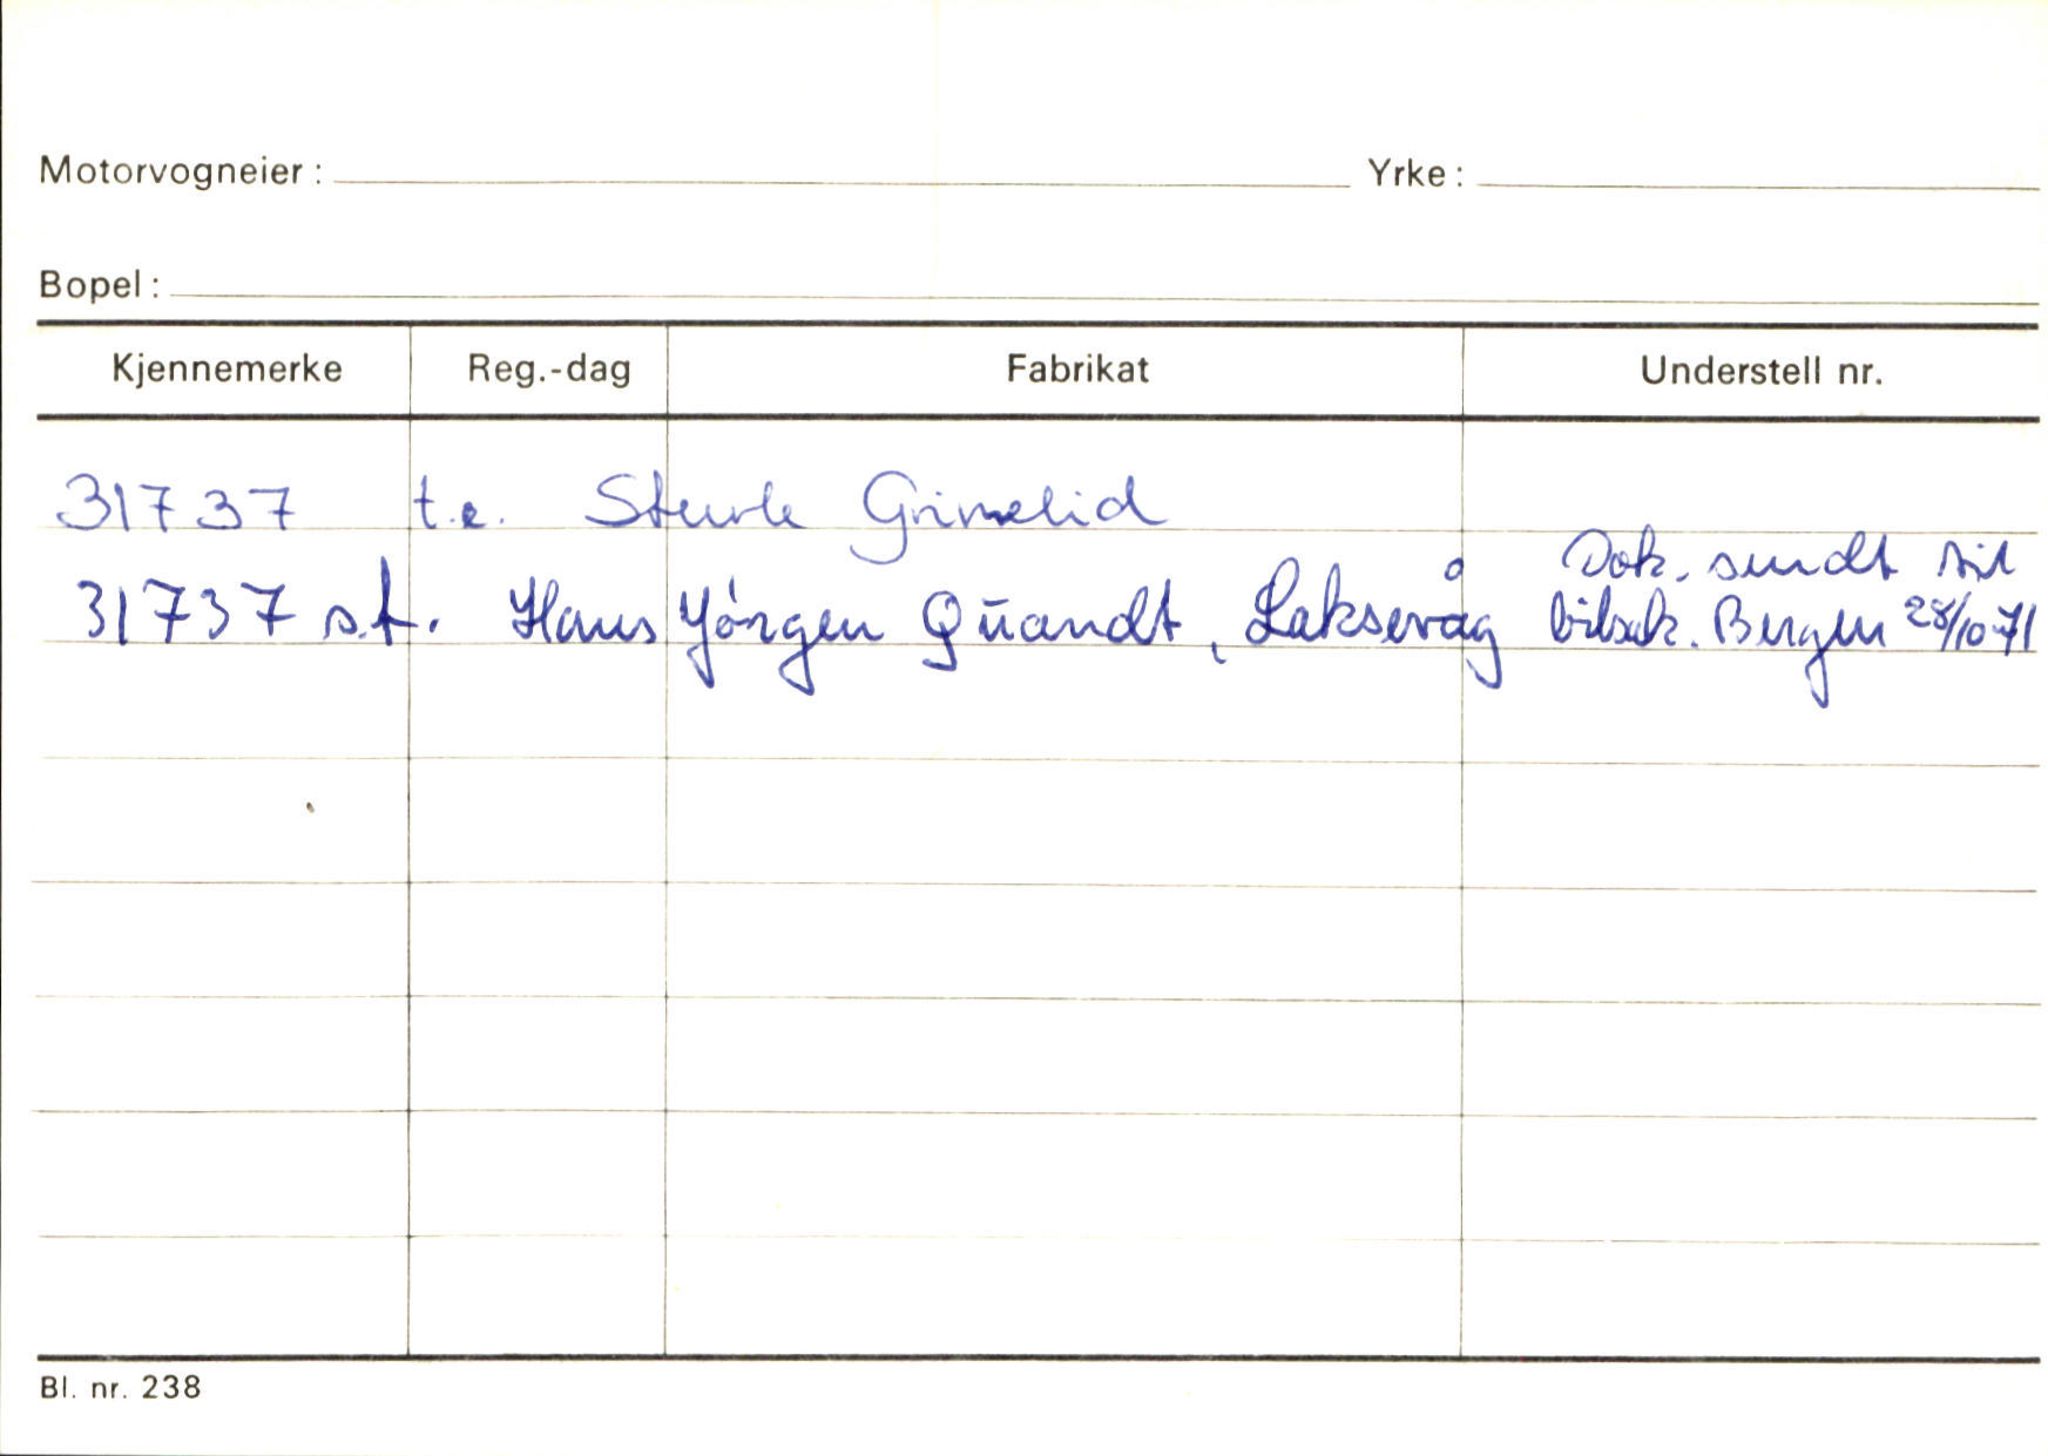 Motorvogneier: Yrke:
Bopel:
Kjennemerke Reg.-dag Fabrikat Understell nr.
31737 t.e. Sturle Grimelid
Dok. sendt til
31737 s.t. Hans Jörgen Quandt, Laksevåg bilsak. Bergen 28/10-71
Bl. nr. 238